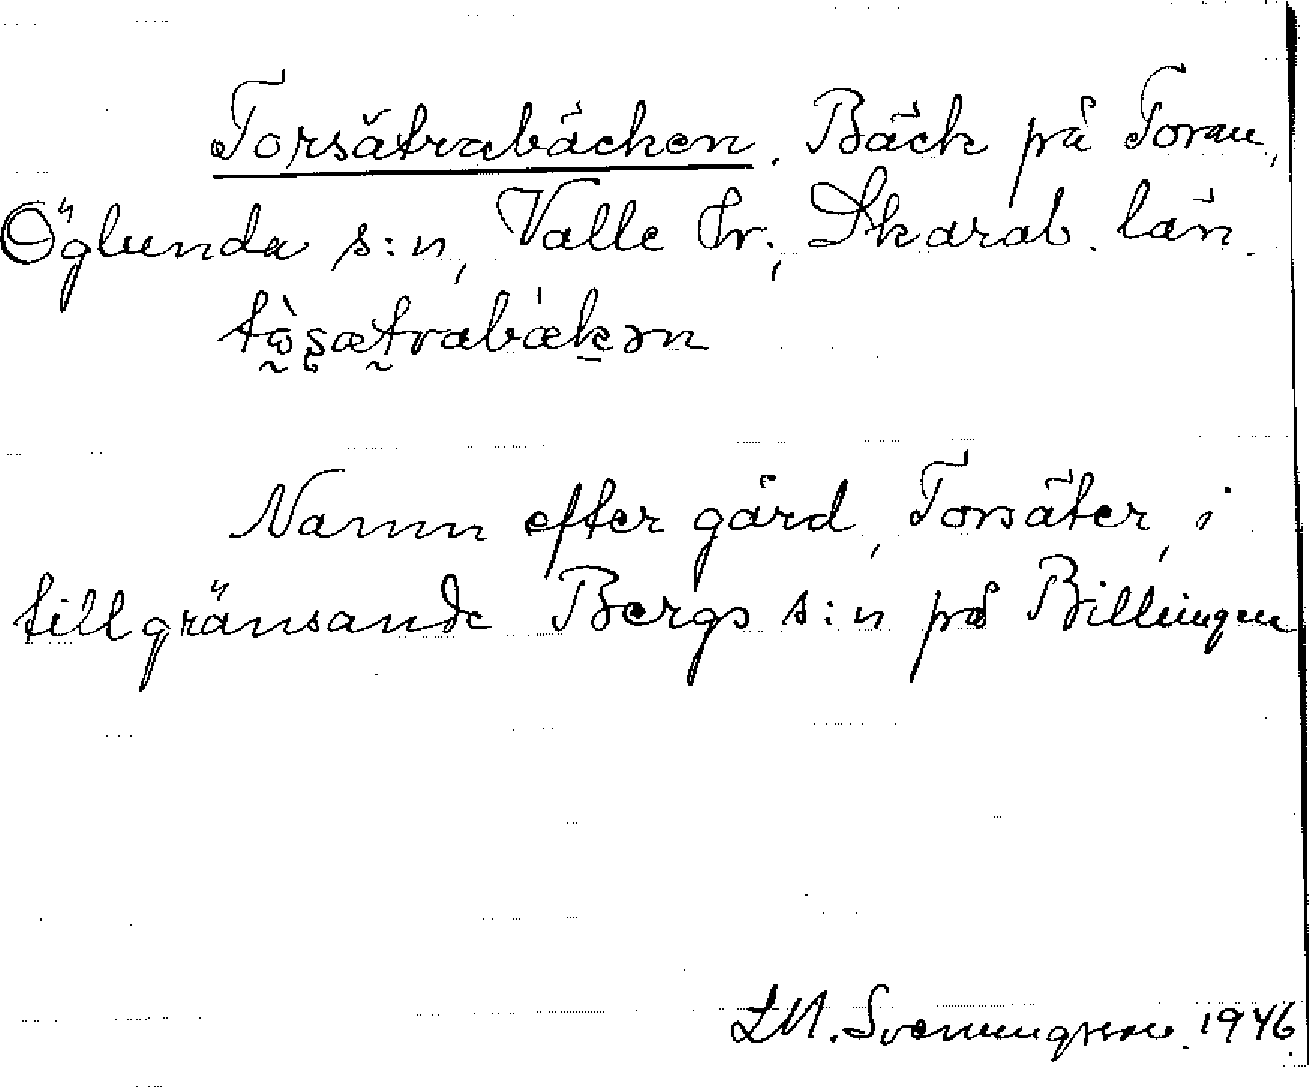 Torsätrabäcken. Bäck på Toran,
Öglunda s:n, Valle hr., Skarab. län.
tò̰ʂæt̰rabækən
Namn efter gård, Torsäter, i
tillgränsande Bergs s:n på Billingen
Svenningsson 1946